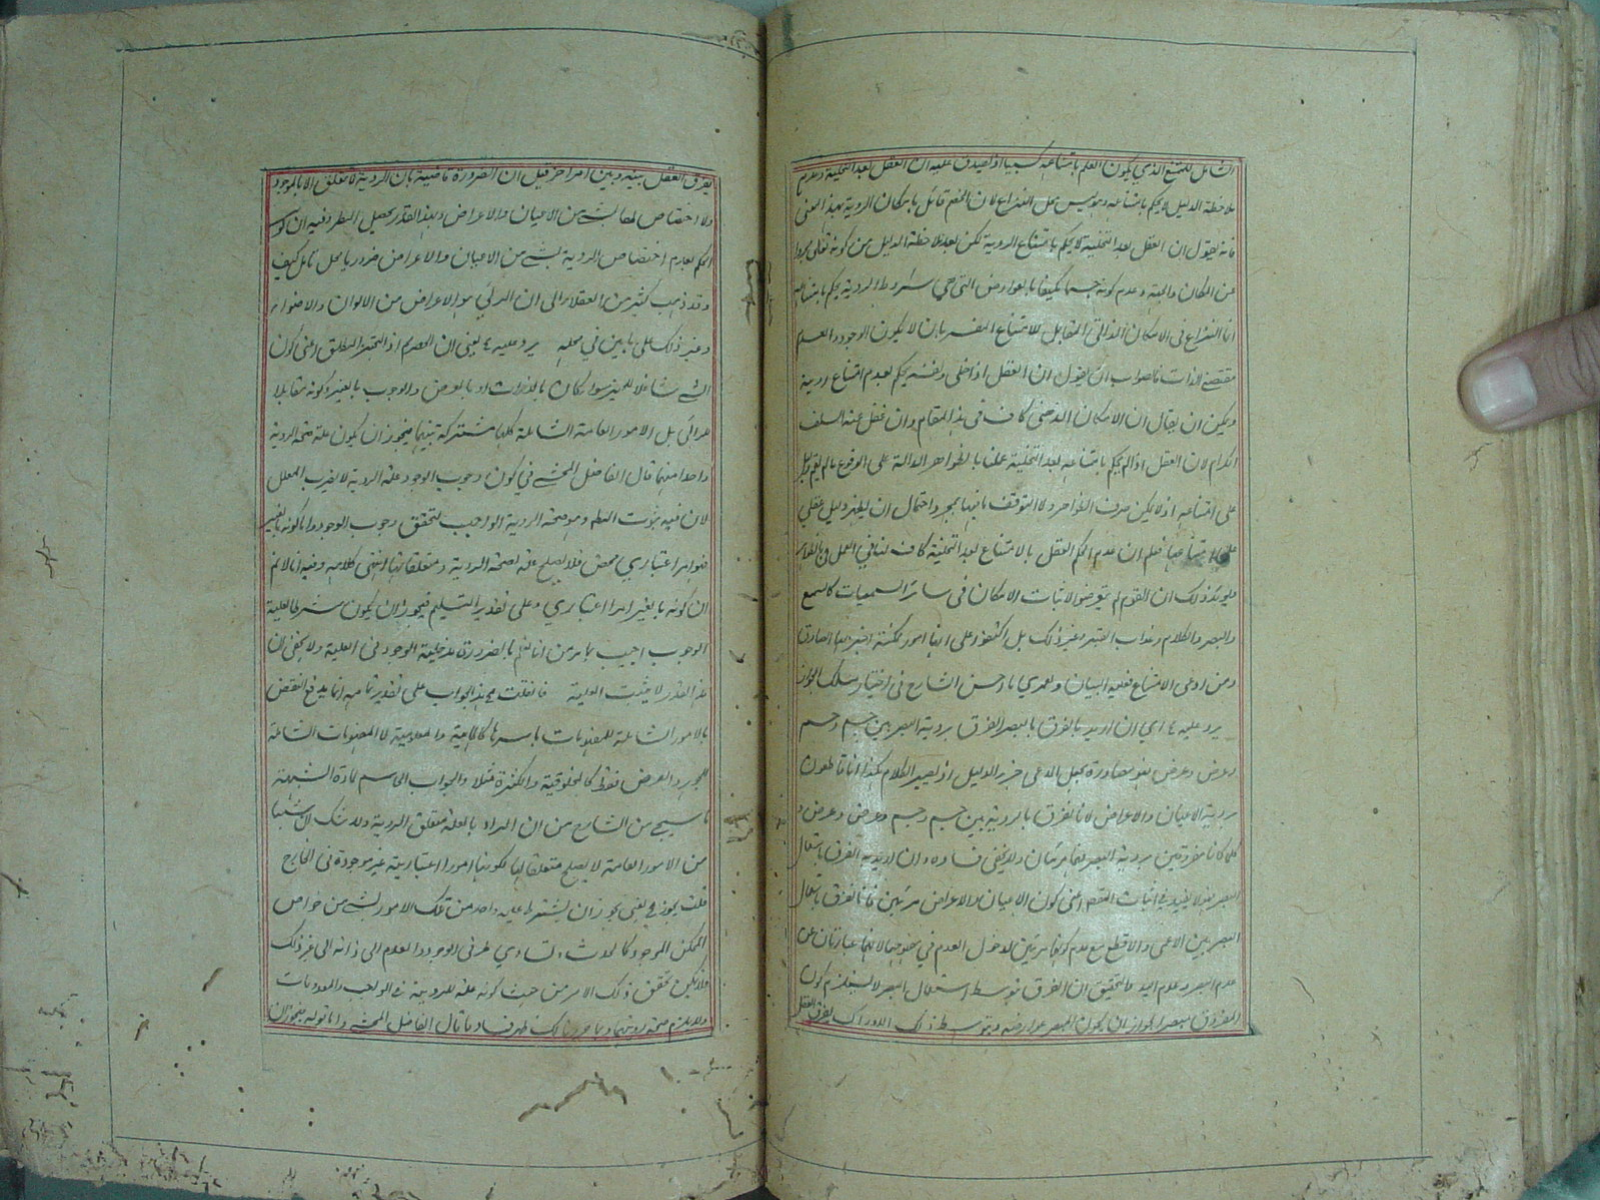 الشامل للممتنع الذي يكون العلم بامتناعه كسبيا اذ يصدق عليه ان العقل بعد التخلية وعدم
ملاحظة الدليل لا يحكم بامتناعه وهو ليس محل النزاع لان الخصم قائل بامكان الروية بهذا المعنى
فانه يقول ان العقل بعد التخلية لا يحكم بامتناع الروية لكن بعد ملاحظة الدليل من كونه تعالى مجردا
عن المكان والجهة وعدم كونه جسما مكيفا بالعوارض التي هي شروط الروية يحكم بامتناعه
انما النزاع في الامكان الذاتي المقابل للامتناع المفسر بان لا يكون الوجود والعدم
مقتضى الذات فالصواب ان يقول ان العقل اذا خلى ونفسه يحكم بعدم امتناع روية
ويمكن ان يقال ان الامكان الذهني كاف في هذا المقام وان غفل عنه السلف
الكرام لان العقل اذا لم يحكم بامتناعه بعد التخلية عملنا بالظواهر الدالة على الوقوع ما لم يقم دليل
على امتناعه اذ لا يمكن صرف الظواهر ولا التوقف فيها بمجرد احتمال ان يظهر دليل عقلي
على امتناعها فعلم ان عدم الحكم العقل بالامتناع بعد التخلية كاف لنا في العمل بالظواهر
ويويد ذلك ان القوم لم يتعرضوا لاثبات الامكان في سائر السمعيات كالسمع
والبصر والكلام وعذاب القبر وغير ذلك بل اكتفوا على انها امور ممكنة اخبر بها الصادق
ومن ادعى الامتناع فعليه البيان ولعمري ما احسن الشارح في اختيار مسلك الجواز
يرد عليه ٤ اي ان اريد بالفرق بالبصر الفرق بروية البصر بين جسم وجسم
وعرض وعرض فهو مصادرة بجعل المدعى جزء الدليل اذ يصير الكلام هكذا انا قاطعون
بروية الاعيان والاعراض لانا نفرق بالروية بين جسم وجسم وعرض وعرض و
كلما كانا مفروقين بروية البصر فهما مرئيان ولا يخفى فساده وان اريد به الفرق باستعمال
البصر فلا يفيد في اثبات المقصد اعني كون الاعيان والاعراض مرئيين فانا نفرق باستعمال
البصر بين الاعمى والاقطع مع عدم كونهما مرئيين لدخول العدم في مفهومهما لانهما عبارتان عن
عدم البصر وعدم اليد فالتحقيق ان الفرق بتوسط استعمال البصر لا يستلزم كون
المفروق مبصرا لجواز ان يكون المبصر عوارضه وبتوسط ذلك الادراك يفرق العقل
يفرق العقل بينه وبين امر اخر قيل ان الضرورة قاضية بان الروية لا تتعلق الا بالموجود
ولا اختصاص لها بشيء من الاعيان والاعراض وبهذا القدر يحصل المطلوب وفيه ان كون
الحكم بعدم اختصاص الروية بشيء من الاعيان والاعراض ضروريا محل تامل كيف
وقد ذهب كثير من العقلاء الى ان المرئي هو الاعراض من الالوان والاضواء
وغير ذلك على ما بين في محله يرد عليه ٤ يعني ان الحصر اذ التحيز المطلق اعني كون
الشيء شاغلا للحيز سواء كان بالذات او بالعرض والوجوب بالغير وكونه مقابلا
للرائي بل الامور العامة الشاملة كلها مشتركة بينهما فيجوز ان يكون علة صحة الروية
واحدا منها قال الفاضل المحشي في كون وجوب الوجود علة الروية لا يضر المعلل
لان فيه ثبوت المط وهو صحة الروية الواجب لتحقق وجوب الوجود واما كونه بالغير
فهو امر اعتباري محض فلا يصلح علة لصحة الروية ومتعلقا لها انتهى كلامه وفيه انا لا نم
ان كونه بالغير امر اعتباري وعلى تقدير التسليم فيجوز ان يكون شرطا لعلية
الوجوب اجيب بامرين انا نعلم بالضرورة مدخلية الوجود في العلية ولا يخفى ان
هذا القدر لا يثبت العلية فان قلت هذا الجواب على تقدير تمامه انما يدفع النقض
بالامور الشاملة للمفهومات باسرها كالماهية والمعلومية لا المفهومات الشاملة
للجوهر والعرض فقط كالمخلوقية والكثرة مثلا والجواب الحاسم لمادة الشبهة
ما سيجيء من الشارح من ان المراد بالعلة متعلق الروية ولا شك ان شيئا
من الامور العامة لا يصلح متعلقا لها لكونها امورا اعتبارية غير موجودة في الخارج
قلت يجوز يعني يجوز ان يشترط علية واحد من تلك الامور بشيء من خواص
الممكن الموجود كالحدوث وتساوي طرفي الوجود والعدم الى ذاته الى غير ذلك
فلا يمكن تحقق ذلك الامر من حيث كونه علة للروية في الواجب والمعدومات
ولا يلزم صحة رويتهما وبما حررنا لك ظهر فساد ما قال الفاضل المحشي واما قوله فيجوز ان